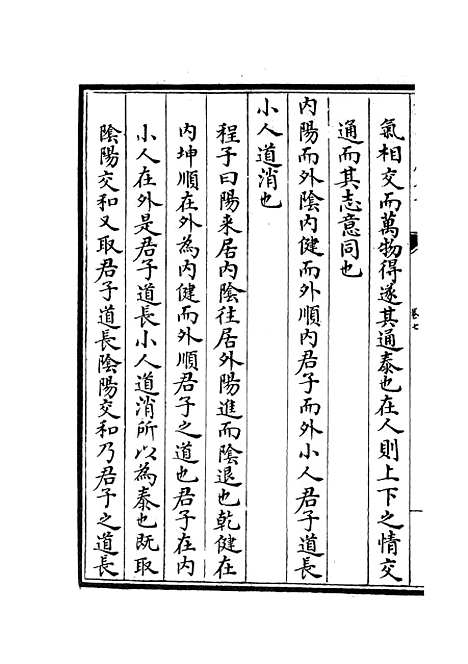 氣相交而萬物得遂其通泰也在人則上下之情交
通而其志意同也
內陽而外陰內健而外順內君子而外小人君子道長
小人道消也
程子曰陽来居內陰往居外陽進而陰退也乾健在
內坤順在外為內健而外順君子之道也君子在內
小人在外是君子道長小人道消所以為泰也既取
陰陽交和又取君子道長陰陽交和乃君子之道長
卷七